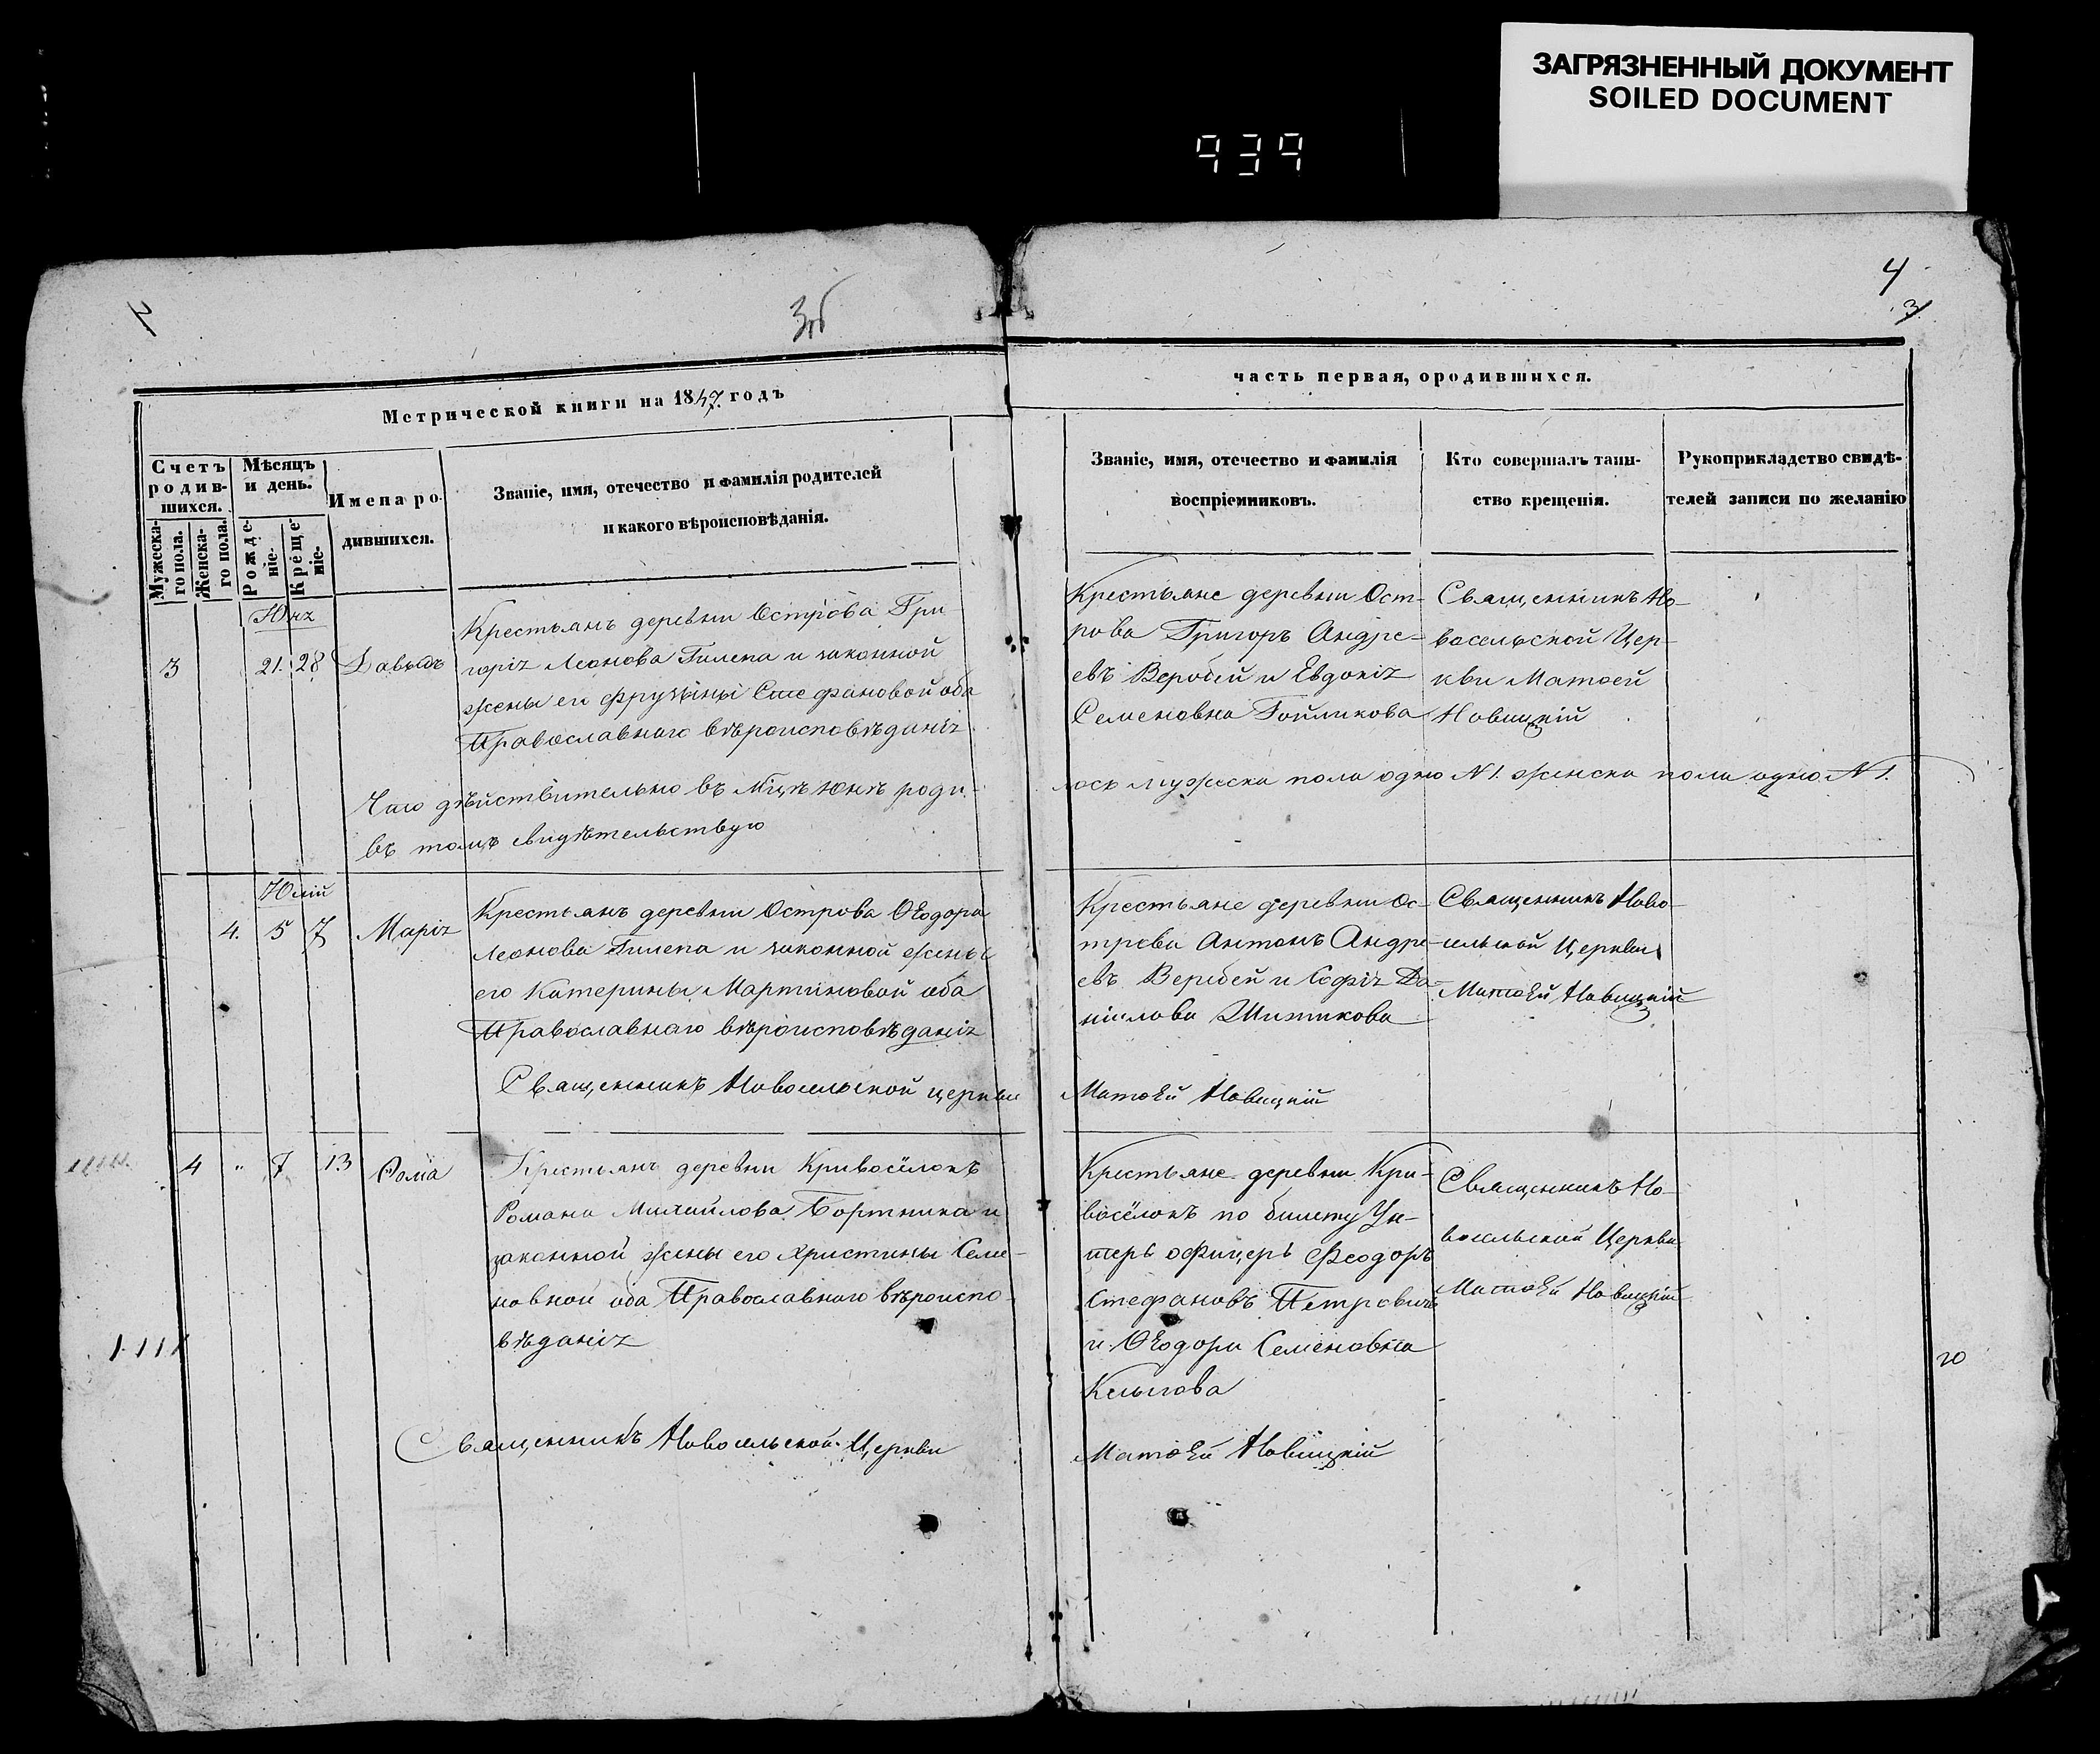 ЗАГРЯЗНЕННЫЙ ДОКУМЕНТ
SOILED DOCUMENT
939
4
3
Метрической книги на 1847 годъ
часть первая, ородившихся.
Счетъ родив-шихся.
Мужеска-го пола.
Женска-го пола.
Мѣсяцъ и день.
Рожде-ніе.
Креще-ніе.
Имена ро-дившихся.
Званіе, имя, отечество и фамилія родителей
и какого вѣроисповѣданія.
Званіе, имя, отечество и фамилія
воспріемниковъ.
Кто совершалъ таин-
ство крещенія.
Рукоприкладство свидѣ-
телей записи по желанію
3
21. 28
Давыдъ
Крестьянъ деревни Острова Гри-
горія Леонова Гилепа и законной
жены его Фрузыны Стефановой оба
Православнаго вѣроисповѣданія
Крестьяне деревни Ост-
рова Григоръ Андре-
евъ Веробей и Евдокія
Семеновна Гойликова
Священникъ Но-
восельской Цер-
кви Матѳей
Новицкій
Чаго дѣйствительно въ Мцѣ Юнѣ роди-
лось мужеска пола одно N 1. женска пола одно N 1.
въ томъ свидѣтельствую
Юлій
4. 5 7
Марія
Крестьянъ деревни Острова Ѳеодора
Леонова Гилепа и законной жены
его Катерины Мартиновой оба
Православнаго вѣроисповѣданія
Крестьяне деревни Ос-
трова Антонъ Андре-
евъ Веробей и Софія Да-
нилова Шитикова
Священникъ Ново-
сельской Церкви
Матѳей Новицкій
Священникъ Новосельской церкви
Матѳей Новицкій
4 " 7 13
Крестьянъ деревни Кривосёлокъ
Романа Михайлова Бортника и
законной жены его Христины Семе-
новной оба Православнаго вѣроиспо-
вѣданія
Крестьяне деревни Кри-
восёлокъ по билету Ун-
теръ офицеръ Феодоръ
Стефановъ Петровичъ
и Ѳеодора Семеновна
Священникъ Но-
восельской Церкви
Матѳей Новицкій
20
Священникъ Новосельской Церкви
Матѳей Новицкій